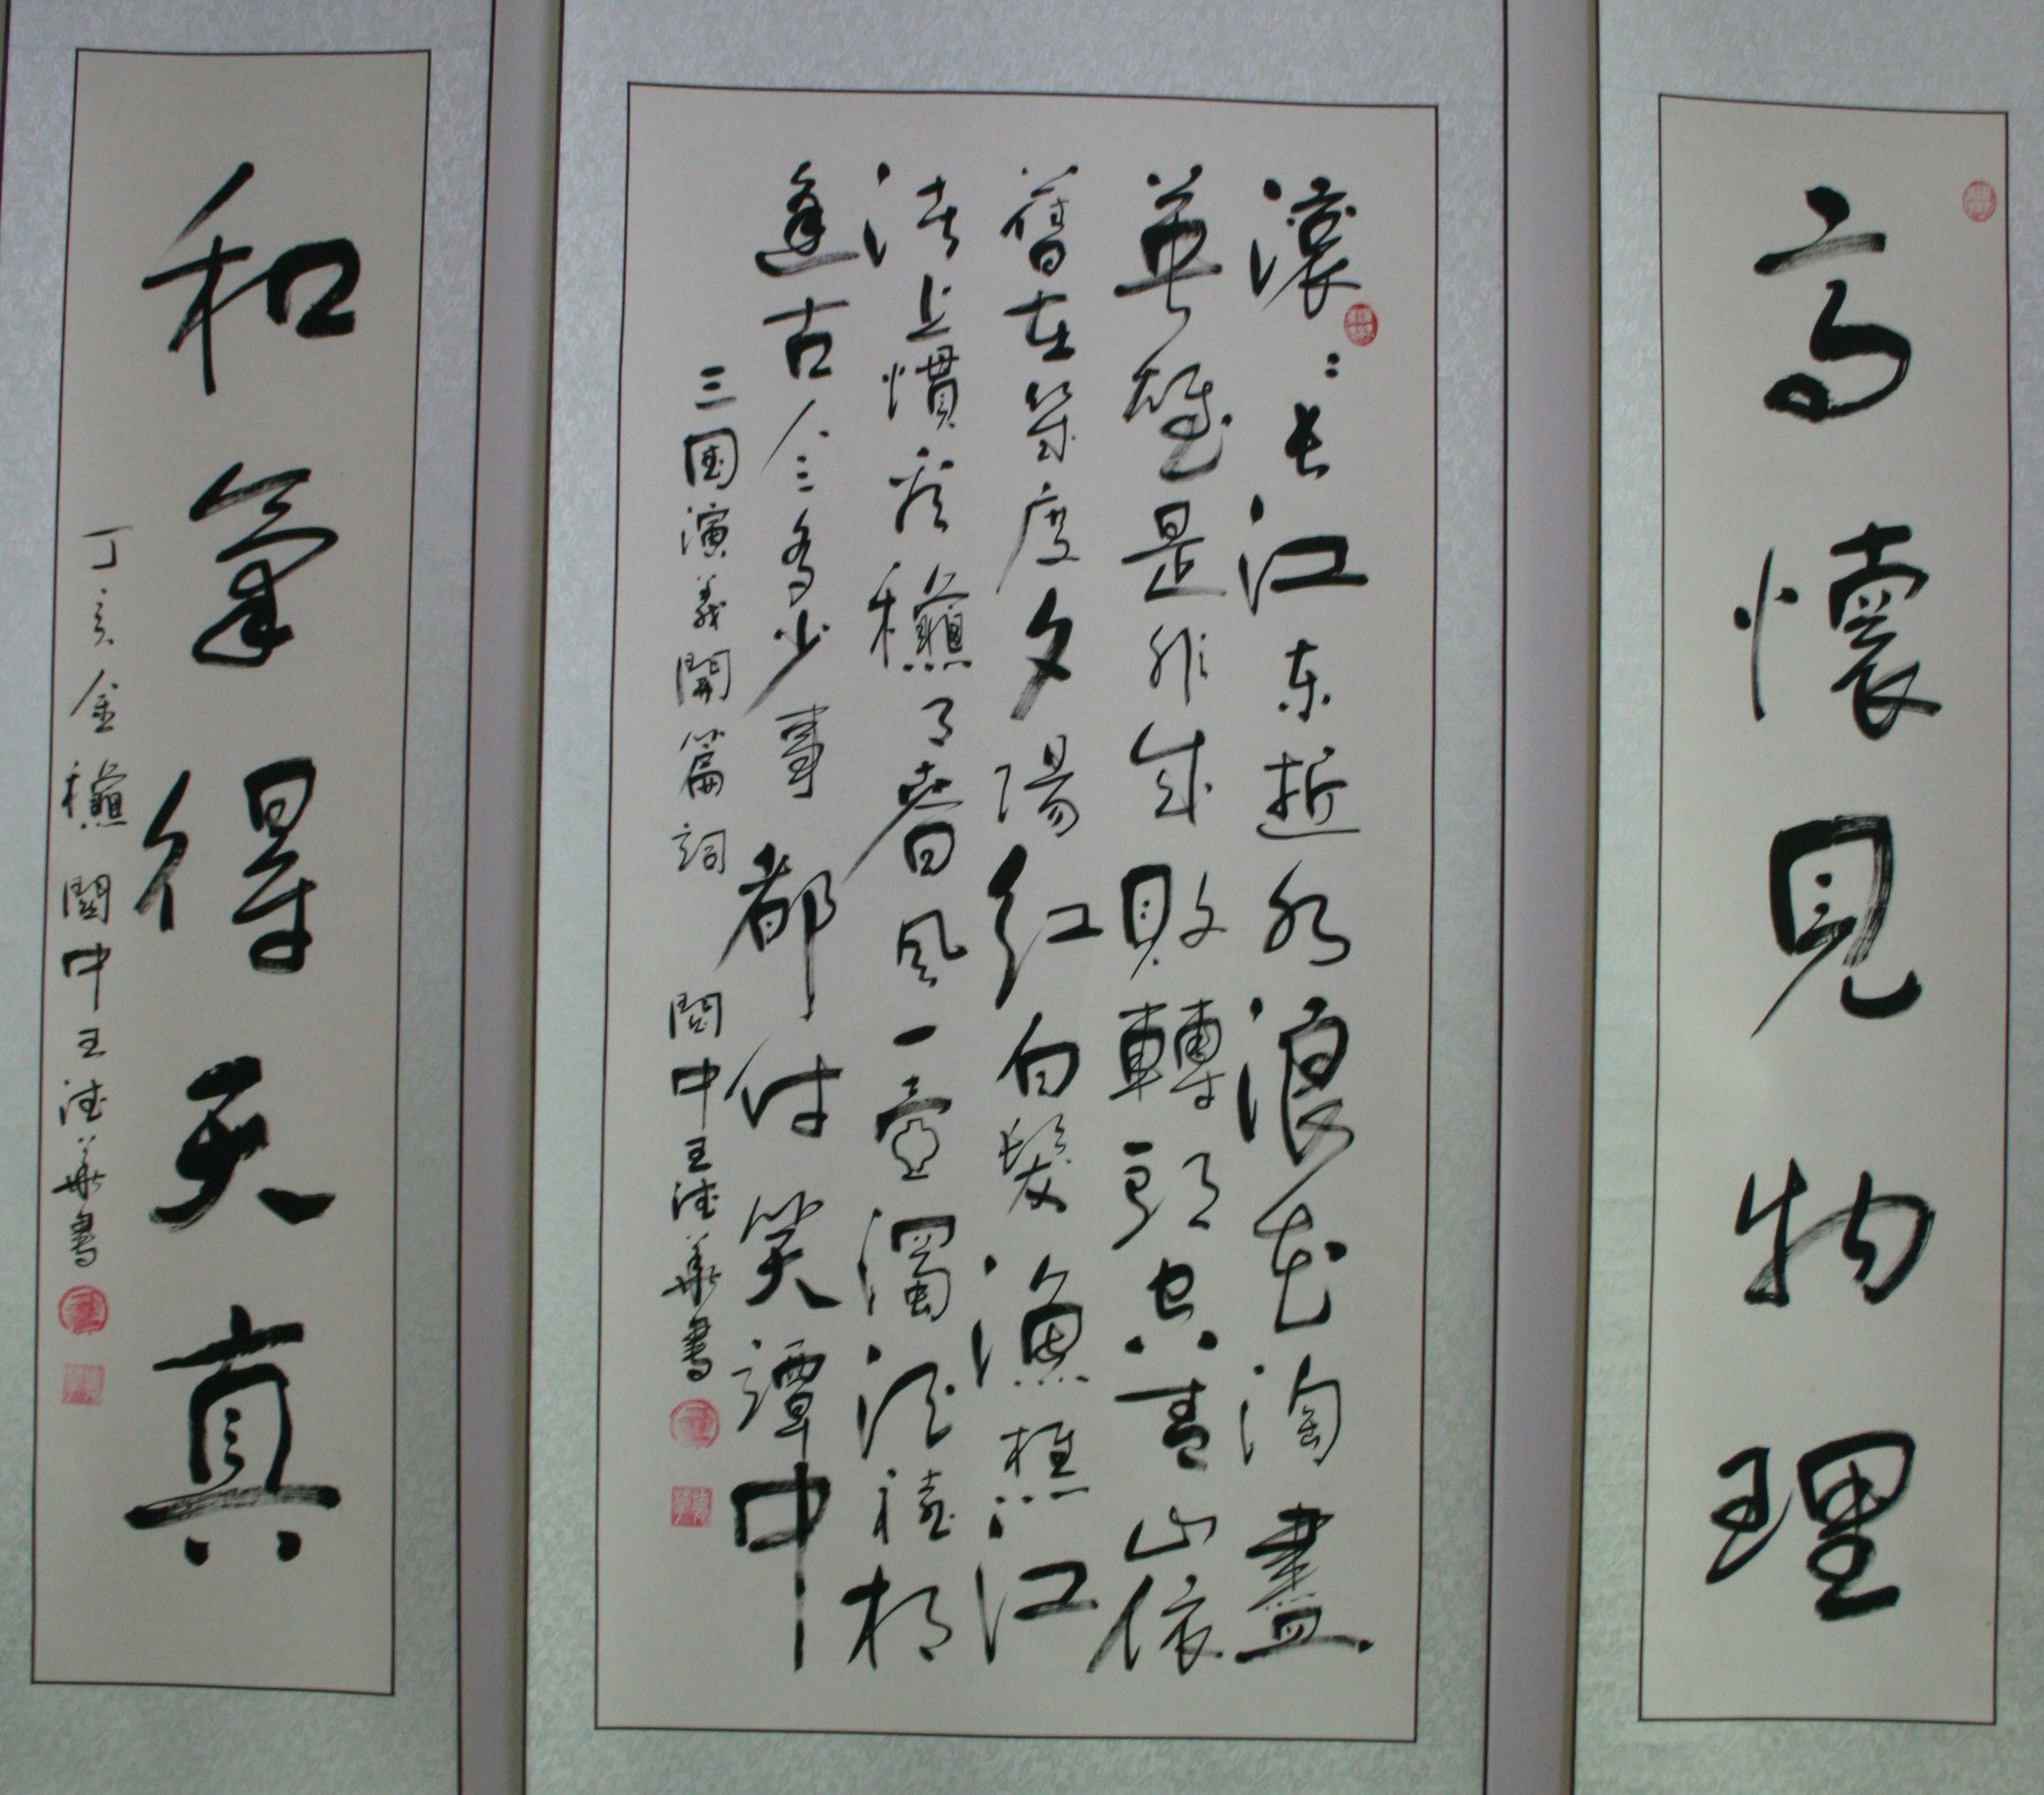 高懷見物理
滚〻长江东逝水浪花淘盡
英雄是非成敗轉頭空青山依
舊在幾度夕陽紅白髮漁樵江
渚上慣看龝月春风一壺濁酒禧相
逢古今多少事都付笑譚中
三国演義開篇詞 閬中王德華書
和氣得天真
丁亥金龝 閬中王德華書